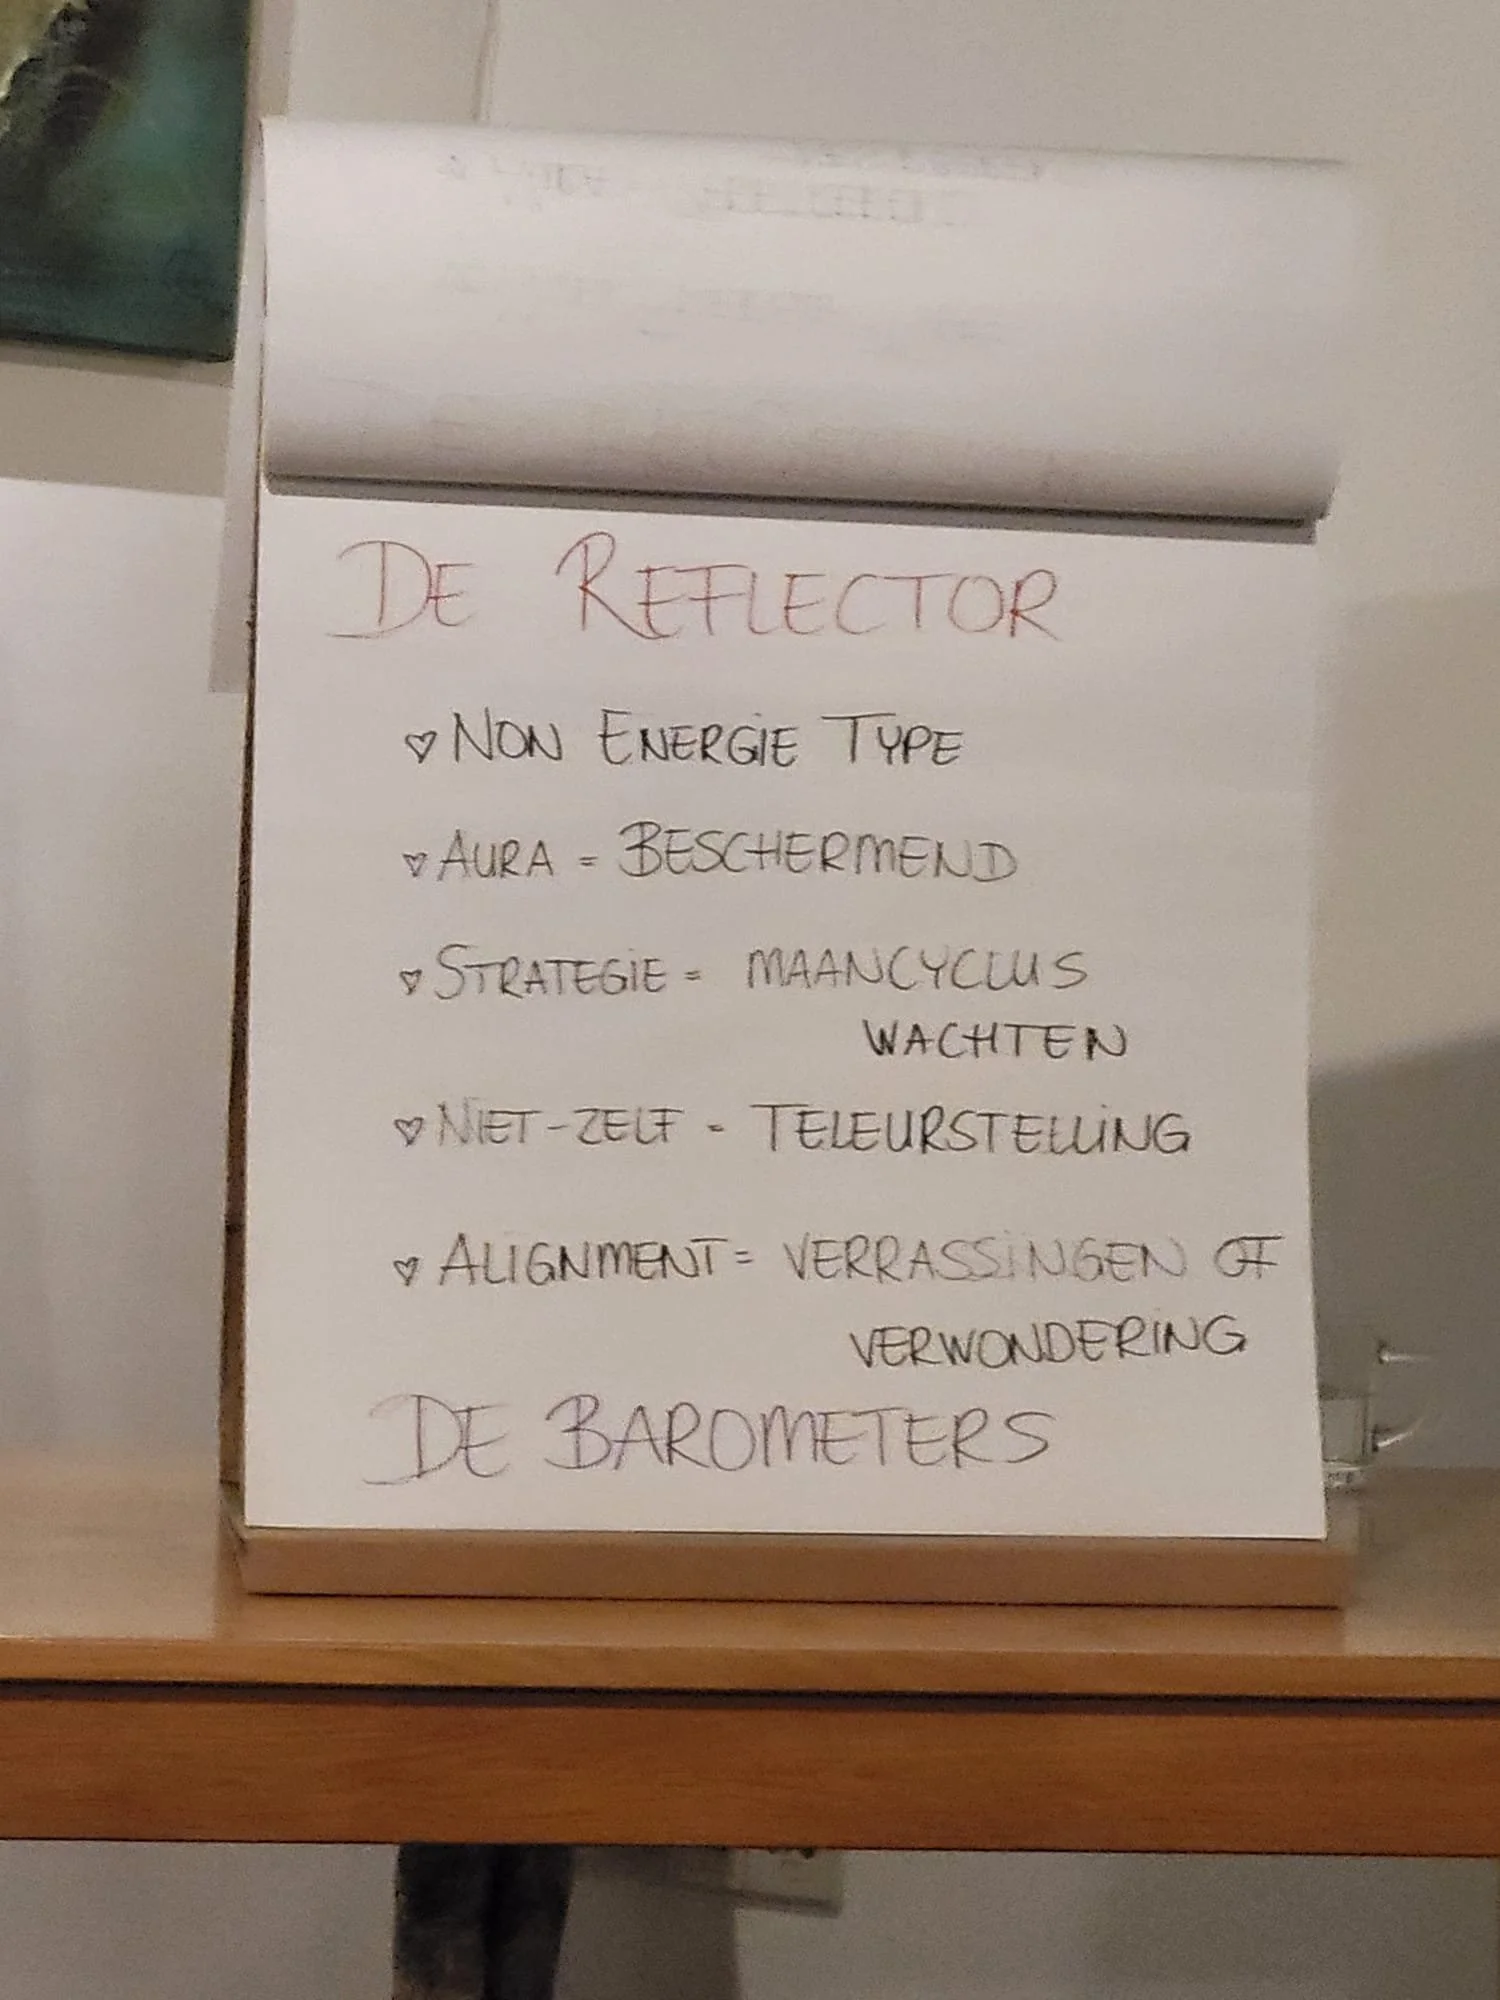 DE REFLECTOR
♡ NON ENERGIE TYPE
♡ AURA = BESCHERMEND
♡ STRATEGIE = MAANCYCLUS
WACHTEN
♡ NIET-ZELF = TELEURSTELLING
♡ ALIGNMENT = VERRASSINGEN OF
VERWONDERING
DE BAROMETERS